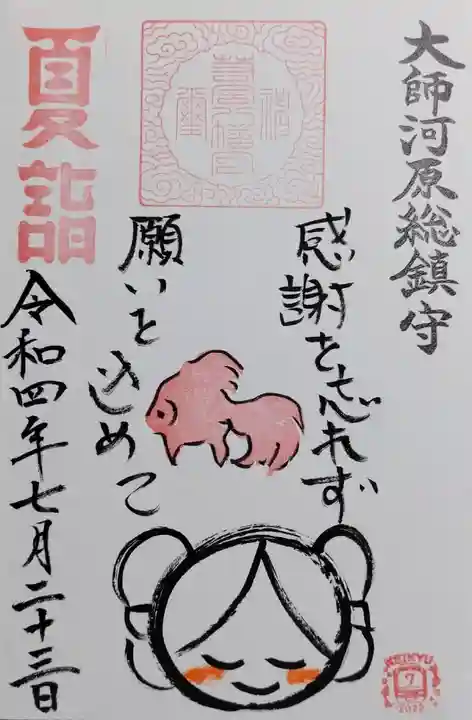 大師河原総鎮守
感謝を忘れず
願いを込めて
夏詣
令和四年七月二十三日
7
2022